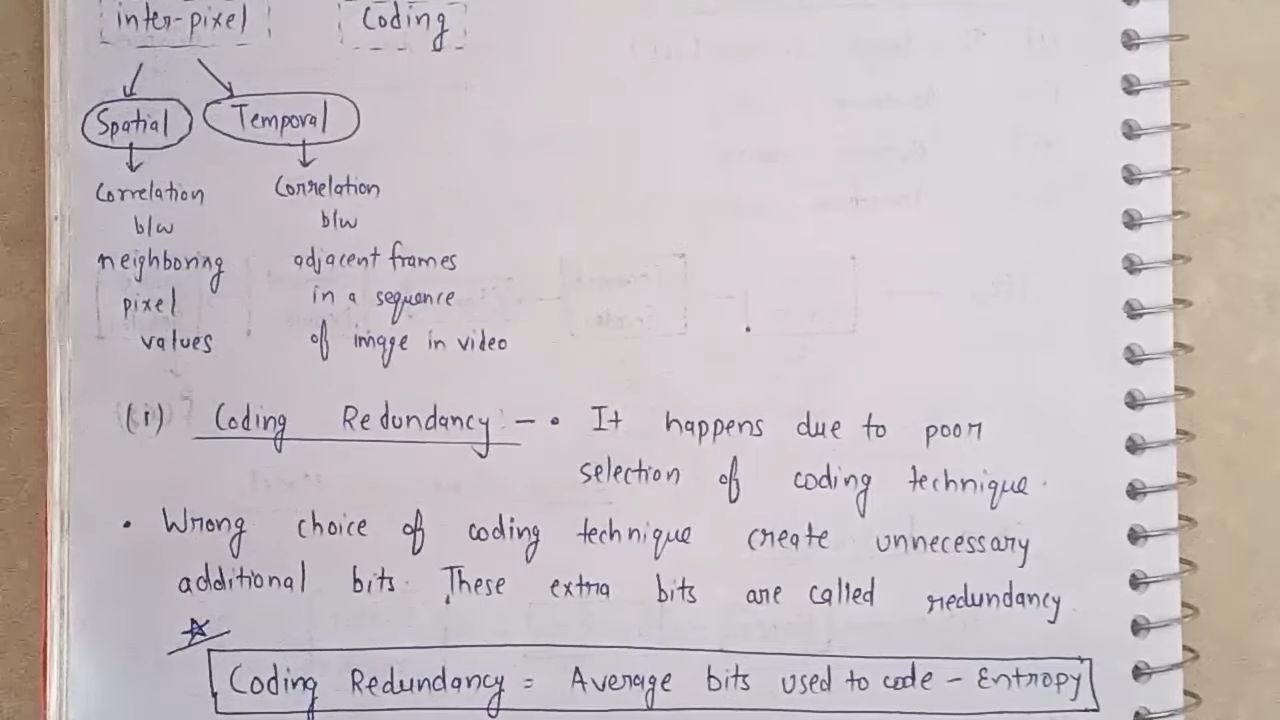 inter-pixel
Coding
Spatial
Temporal
Correlation
b/w
neighboring
pixel
values
Correlation
b/w
adjacent frames
in a sequence
of image in video
(i) Coding Redundancy :- • It happens due to poor
selection of coding technique.
• Wrong choice of coding technique create unnecessary
additional bits. These extra bits are called redundancy
Coding Redundancy = Average bits used to code - Entropy